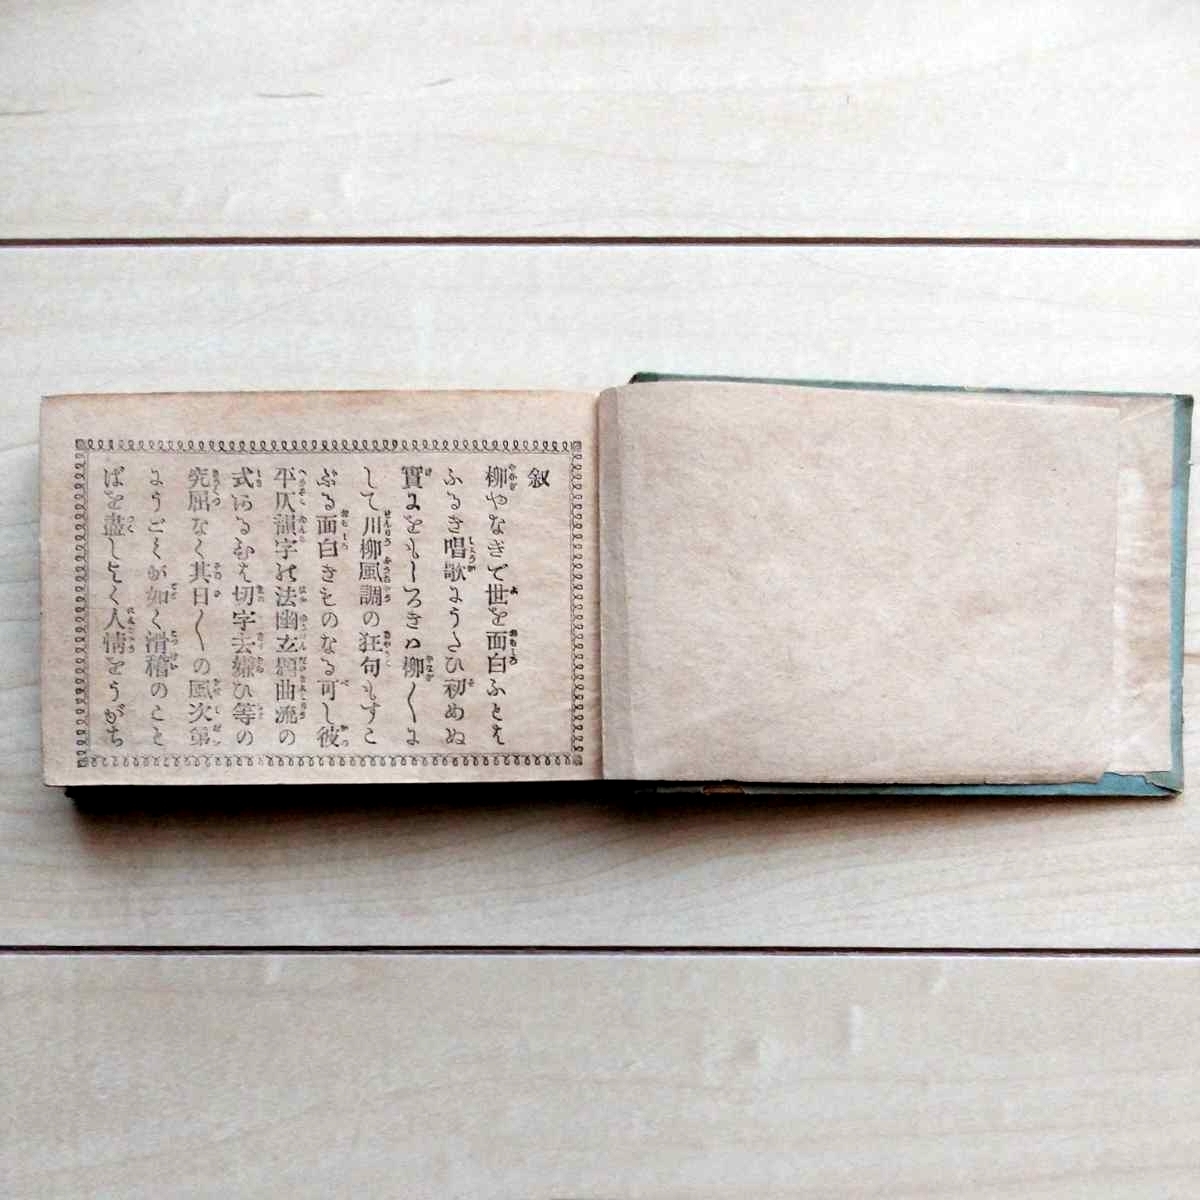 叙
柳やなぎで世を面白ふとは
ふるき唱歌にうたひ初めぬ
實にをもしろきは柳〳〵に
して川柳風調の狂句もすこ
ぶる面白きものなる可し彼
平仄韻字の法幽玄 曲流の
式あるひは切字去嫌ひ等の
究屈なく其日〳〵の風次第
にうごくが如く滑稽のこと
ばを盡しよく人情をうがち